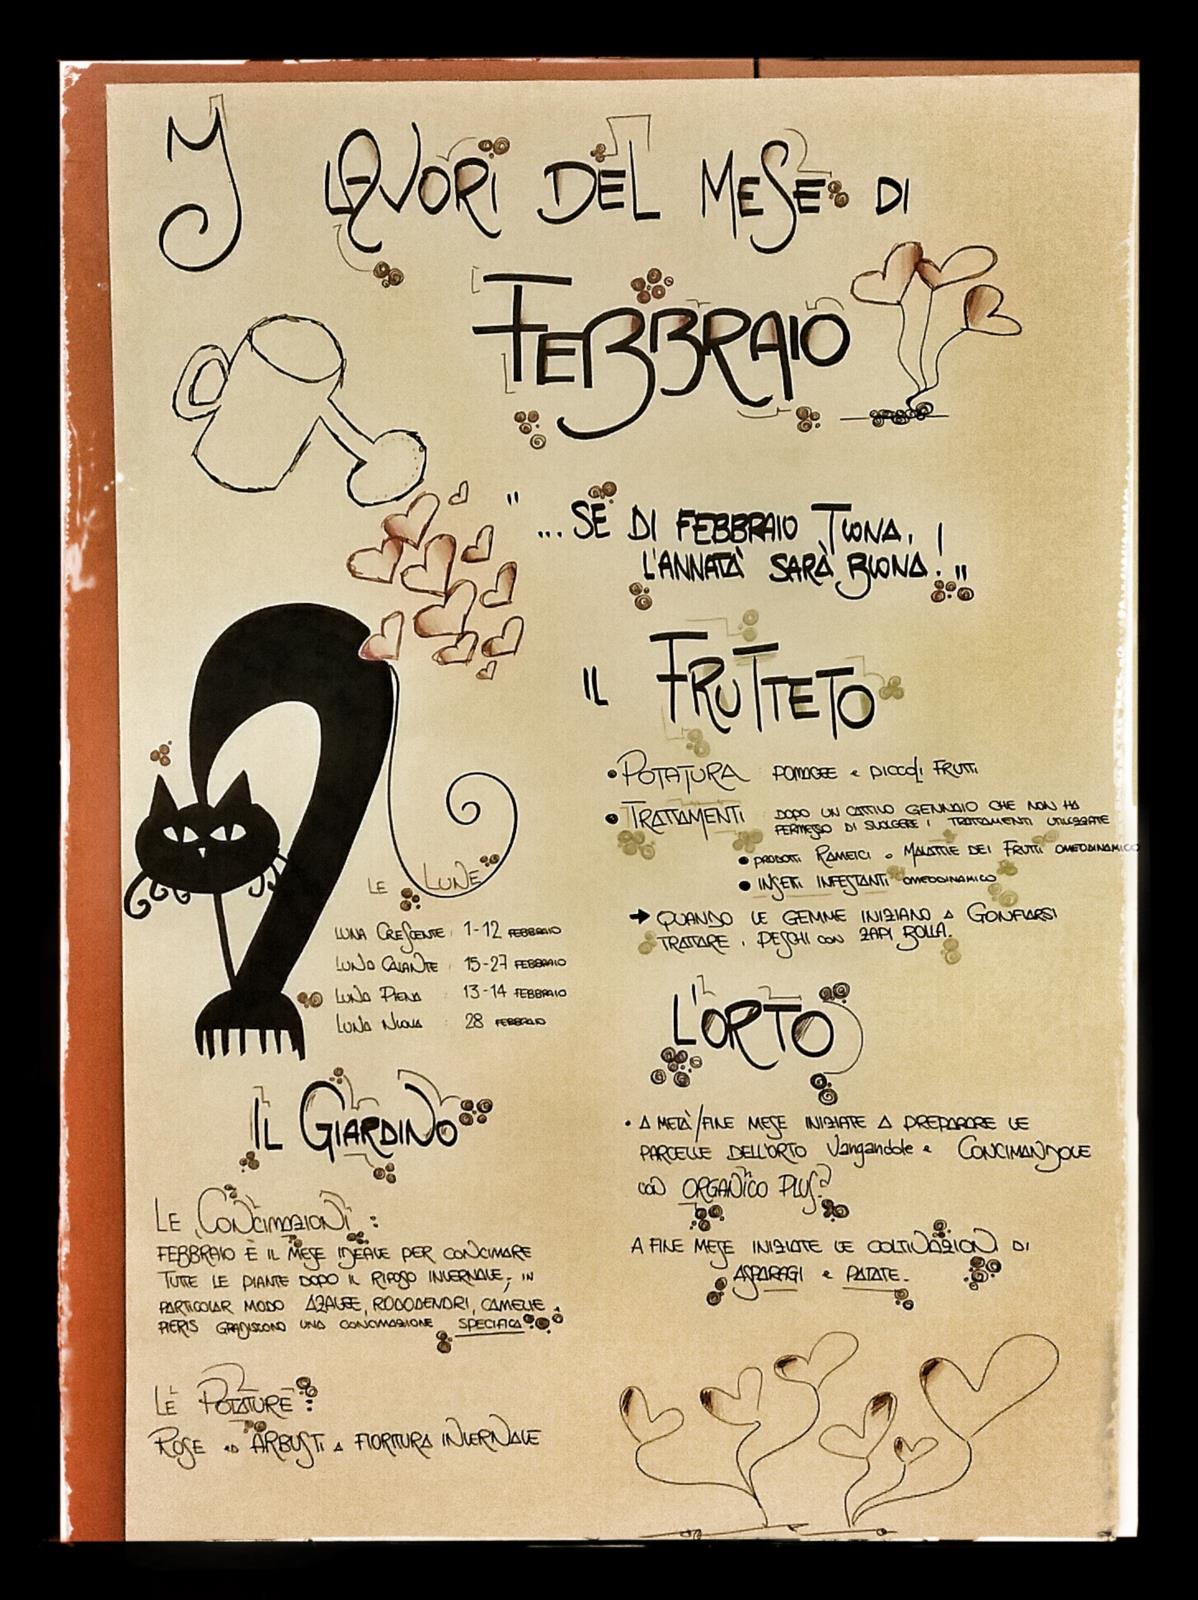 I LAVORI DEL MESE DI
FEBBRAIO
"...SE DI FEBBRAIO TUONA,
L'ANNATA SARÀ BUONA!"
IL FRUTTETO
• POTATURA POMACEE e PICCOLI FRUTTI
• TRATTAMENTI DOPO UN CATTIVO GENNAIO CHE NON HA
PERMESSO DI SVOLGERE I TRATTAMENTI UTILIZZATE
• PRODOTTI RAMEICI o MALATTIE DEI FRUTTI OMEODINAMICO
• INSETTI INFESTANTI OMEODINAMICO
→ QUANDO LE GEMME INIZIANO A GONFIARSI
TRATTARE I PESCHI CON ZAPI BOLLA.
LE LUNE
LUNA CRESCENTE: 1-12 FEBBRAIO
LUNA CALANTE: 15-27 FEBBRAIO
LUNA PIENA: 13-14 FEBBRAIO
LUNA NUOVA: 28 FEBBRAIO
L'ORTO
• A METÀ/FINE MESE INIZIATE A PREPARARE LE
PARCELLE DELL'ORTO Vangandole e CONCIMANDOLE
CON ORGANICO PLUS
A FINE MESE INIZIATE LE COLTIVAZIONI DI
ASPARAGI e PATATE.
IL GIARDINO
LE CONCIMAZIONI:
FEBBRAIO È IL MESE IDEALE PER CONCIMARE
TUTTE LE PIANTE DOPO IL RIPOSO INVERNALE; IN
PARTICOLAR MODO AZALEE, RODODENDRI, CAMELIE e
PIERIS GRADISCONO UNA CONCIMAZIONE SPECIFICA
LE POTATURE:
ROSE ED ARBUSTI A FIORITURA INVERNALE